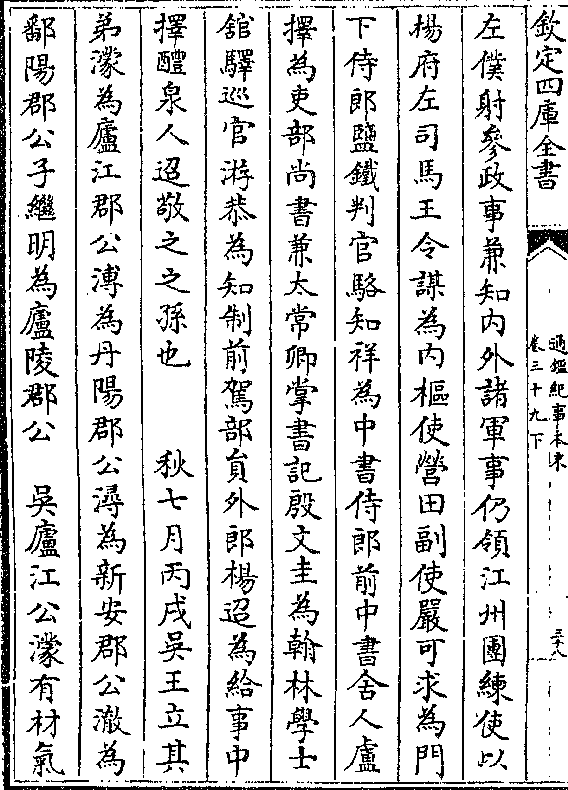 欽定四庫全書
通鑑紀事本末
卷三十九下
三十八
左僕射參政事兼知内外諸軍事仍領江州團練使以
楊府左司馬王令謀為内樞使營田副使嚴可求為門
下侍郎鹽鐵判官駱知祥為中書侍郎前中書舍人盧
擇為吏部尚書兼太常卿掌書記殷文圭為翰林學士
舘驛巡官游恭為知制前駕部貟外郎楊迢為給事中
擇醴泉人迢敬之之孫也　　秋七月丙戌吳王立其
弟濛為廬江郡公溥為丹陽郡公潯為新安郡公澈為
鄱陽郡公子繼明為廬陵郡公　吳廬江公濛有材氣